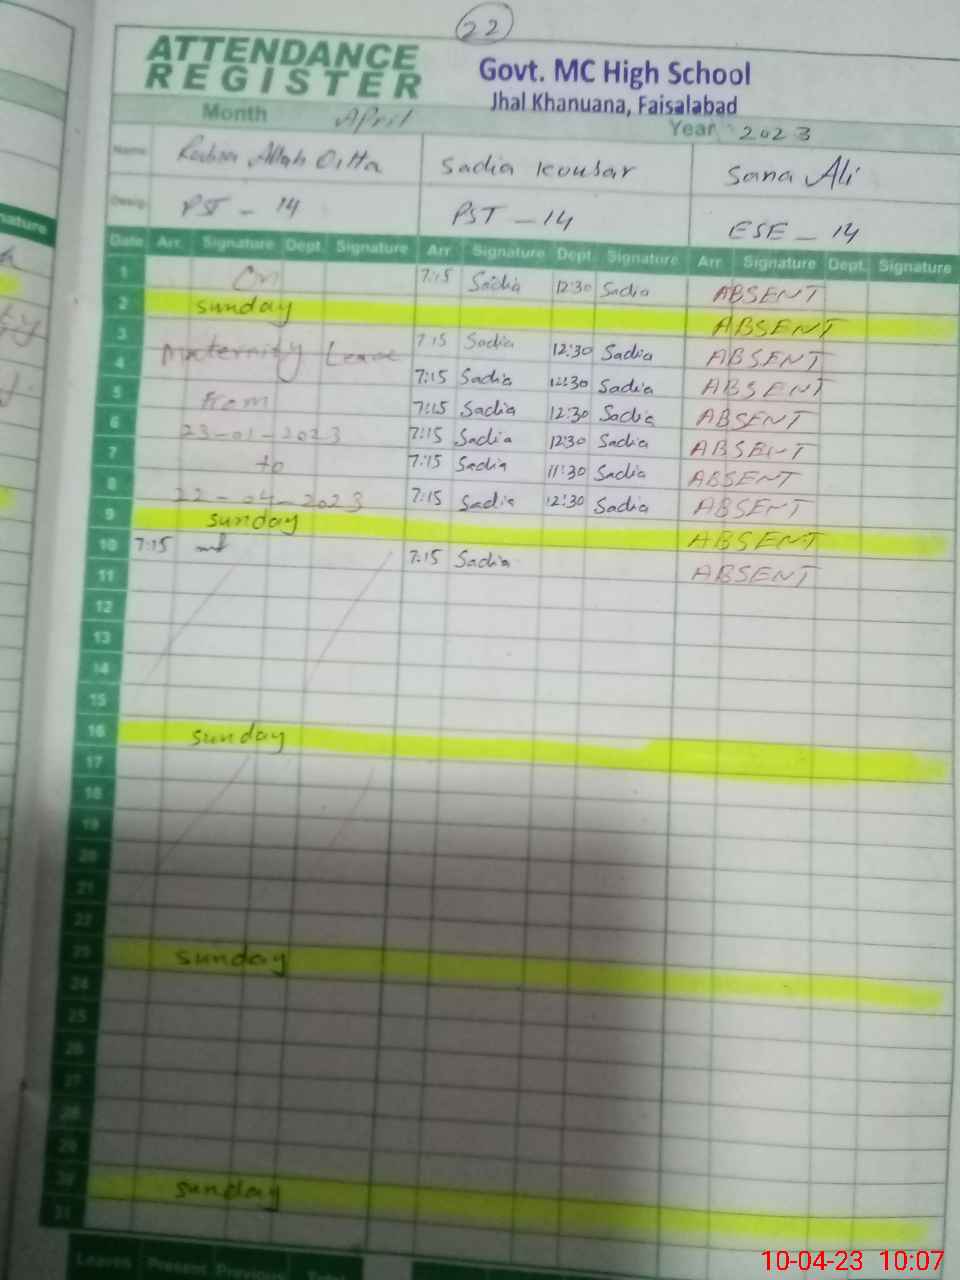 22
ATTENDANCE
REGISTER
Govt. MC High School
Jhal Khanuana, Faisalabad
Month April Year 2023
Name Allah Ditta Sadia kousar Sana Ali
Desig. PST - 14 PST - 14 ESE - 14
Date Arr. Signature Dept. Signature Arr. Signature Dept. Signature Arr. Signature Dept. Signature
1 On 7:15 Sadia 12:30 Sadia ABSENT
2 sunday ABSENT
3 Maternity Leave 7:15 Sadia 12:30 Sadia ABSENT
4 7:15 Sadia 12:30 Sadia ABSENT
5 From 7:15 Sadia 12:30 Sadia ABSENT
6 23-01-2023 7:15 Sadia 12:30 Sadia ABSENT
7 to 7:15 Sadia 11:30 Sadia ABSENT
8 22-04-2023 7:15 Sadia 12:30 Sadia ABSENT
9 sunday ABSENT
10 7:15 7:15 Sadia ABSENT
11
12
13
14
15
16 sunday
17
18
19
20
21
22
23 sunday
24
25
26
27
28
29
30 sunday
31
Leaves Present Previous Total
10-04-23 10:07